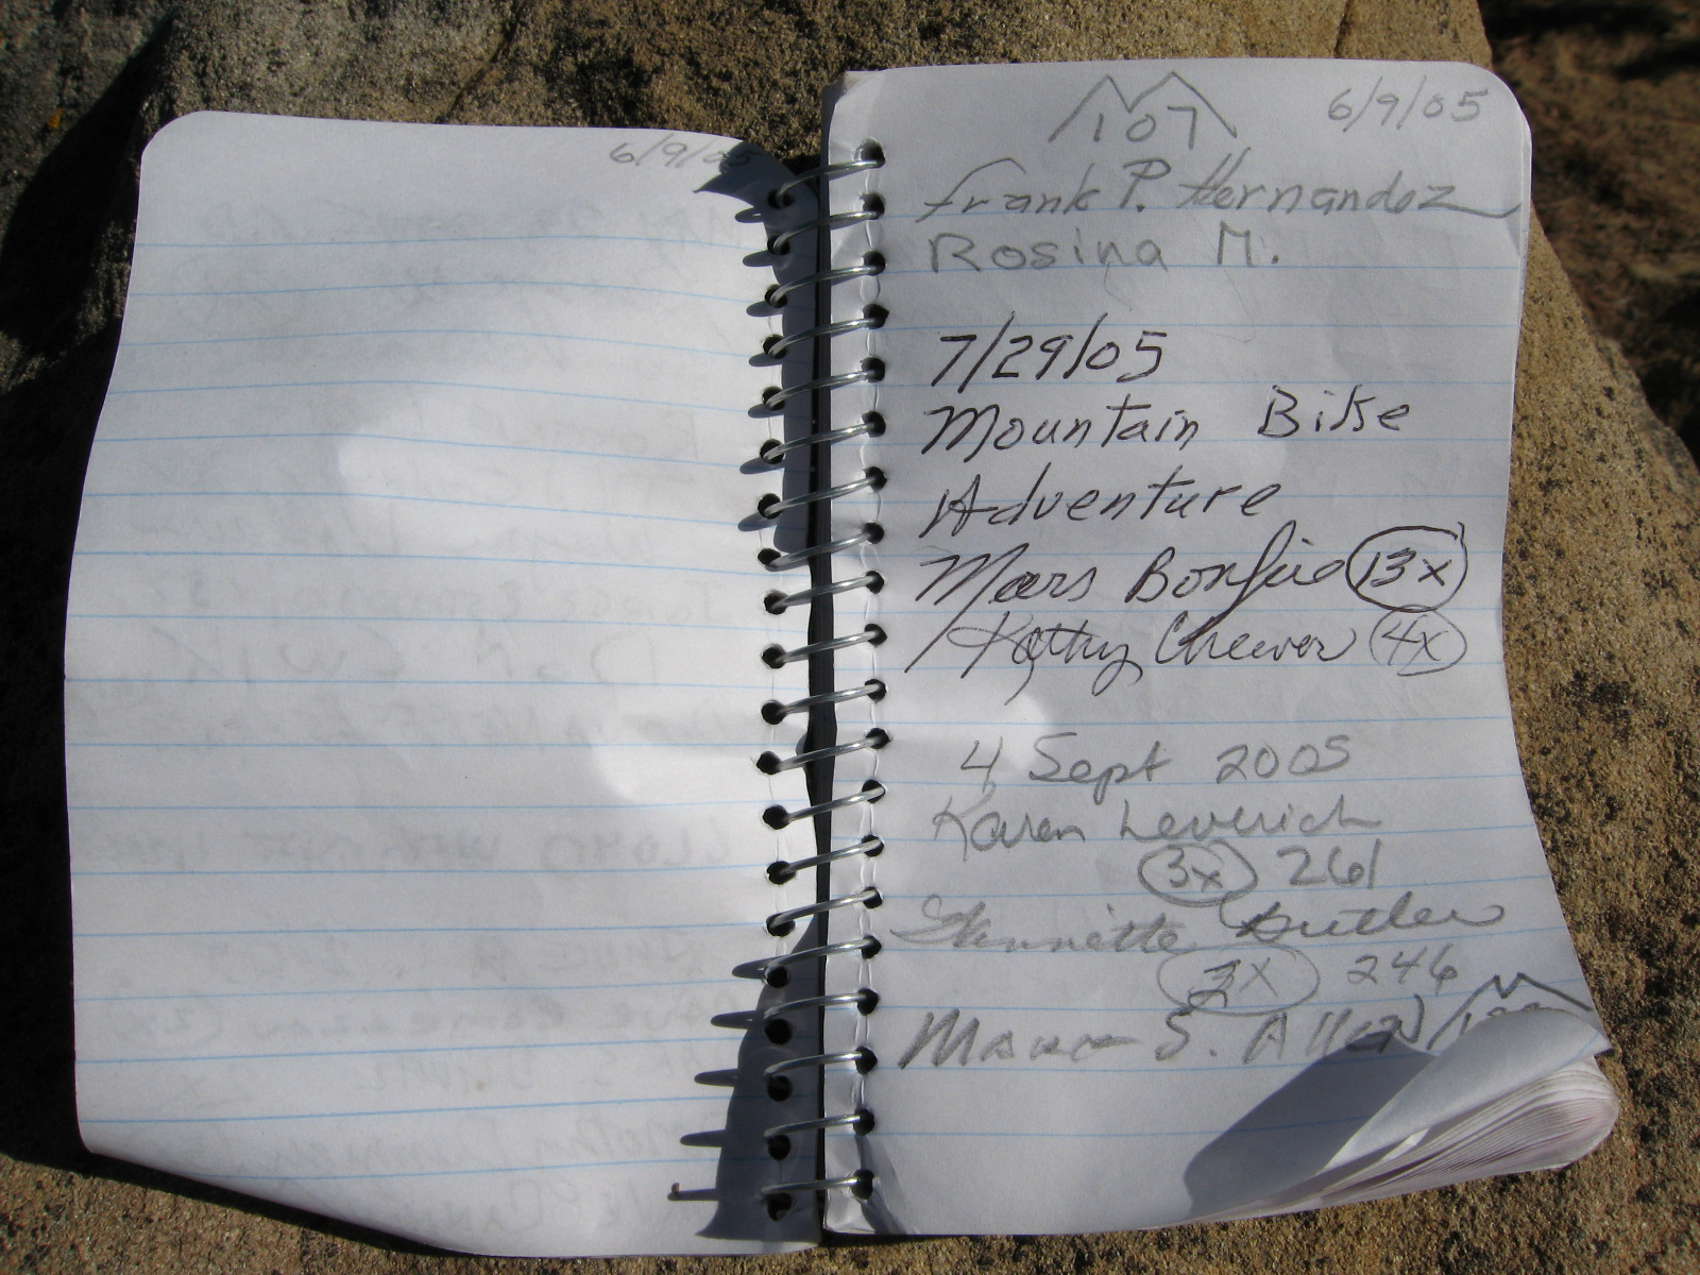 6/9/05
107 6/9/05
Frank P. Hernandez
Rosina M.
7/29/05
Mountain Bike
Adventure
Mars Bonfire 13x
Kathy Cheever 4x
4 Sept 2005
Karen Leverich
3x 261
Butler
246
S. Allen